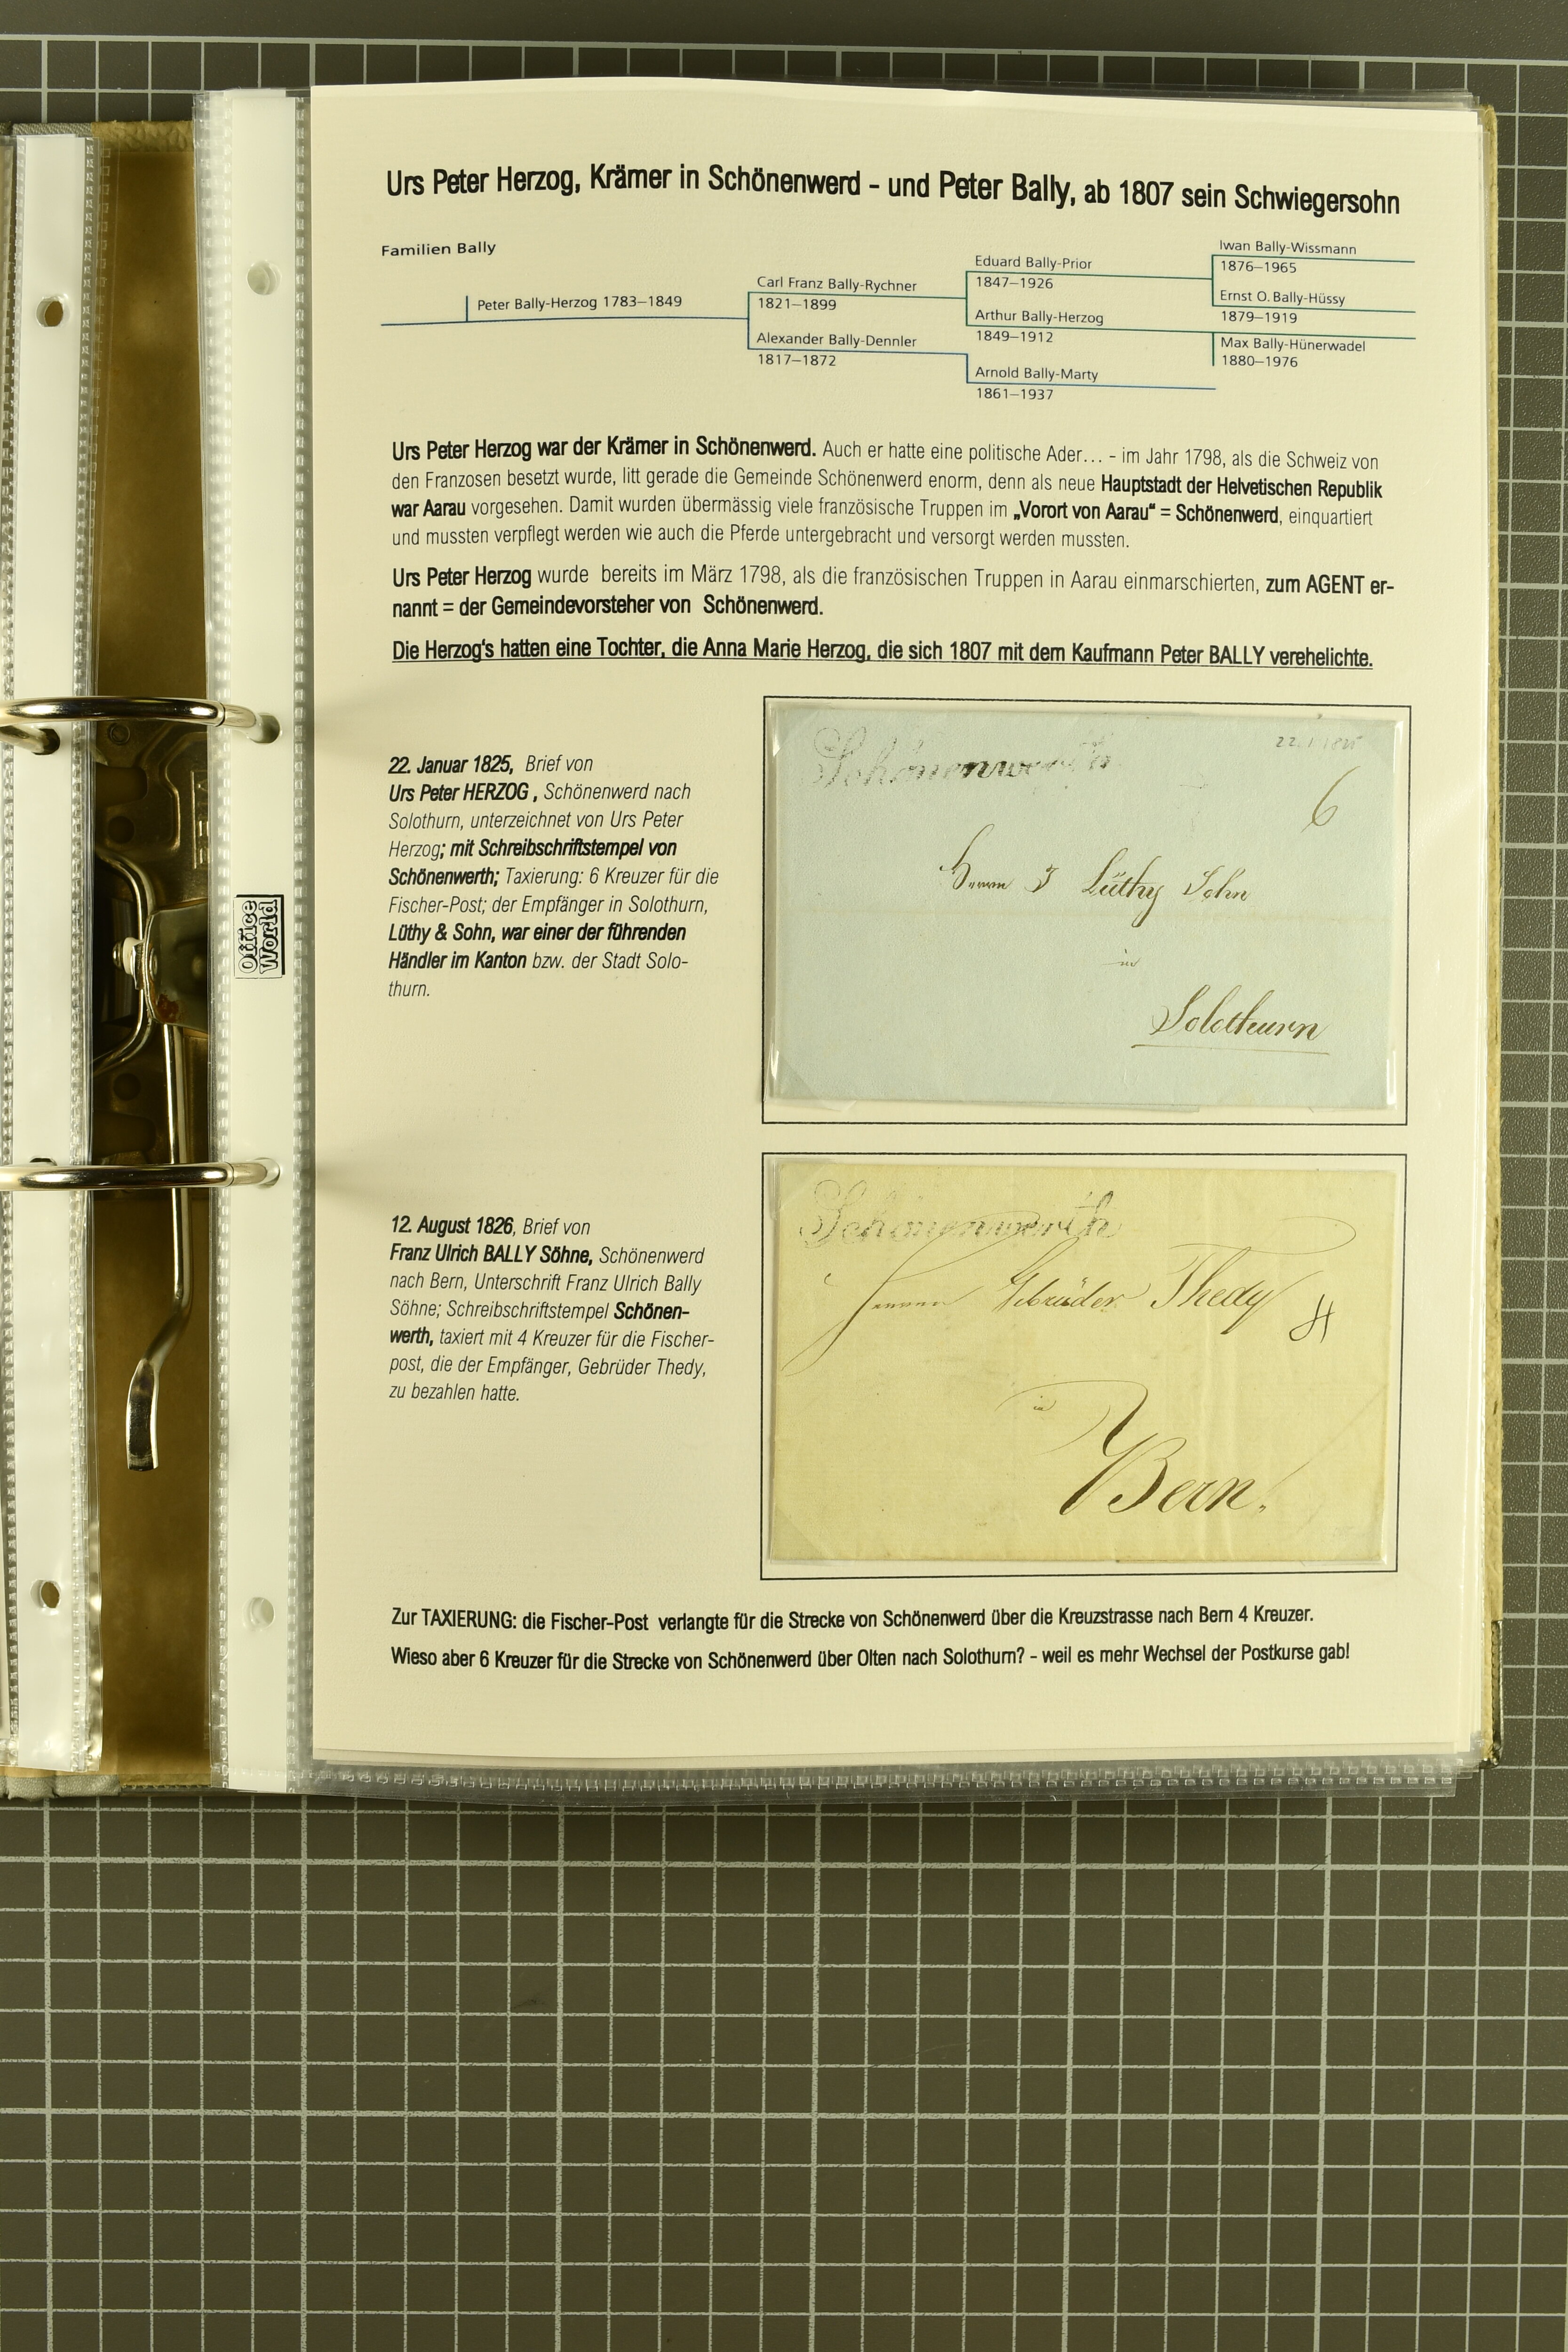 Urs Peter Herzog, Krämer in Schönenwerd - und Peter Bally, ab 1807 sein Schwiegersohn
Familien Bally
Peter Bally-Herzog 1783–1849
Carl Franz Bally-Rychner
1821–1899
Alexander Bally-Dennler
1817–1872
Eduard Bally-Prior
1847–1926
Arthur Bally-Herzog
1849–1912
Arnold Bally-Marty
1861–1937
Iwan Bally-Wissmann
1876–1965
Ernst O. Bally-Hüssy
1879–1919
Max Bally-Hünerwadel
1880–1976
Urs Peter Herzog war der Krämer in Schönenwerd. Auch er hatte eine politische Ader… - im Jahr 1798, als die Schweiz von
den Franzosen besetzt wurde, litt gerade die Gemeinde Schönenwerd enorm, denn als neue Hauptstadt der Helvetischen Republik
war Aarau vorgesehen. Damit wurden übermässig viele französische Truppen im „Vorort von Aarau“ = Schönenwerd, einquartiert
und mussten verpflegt werden wie auch die Pferde untergebracht und versorgt werden mussten.
Urs Peter Herzog wurde bereits im März 1798, als die französischen Truppen in Aarau einmarschierten, zum AGENT er-
nannt = der Gemeindevorsteher von Schönenwerd.
Die Herzog's hatten eine Tochter, die Anna Marie Herzog, die sich 1807 mit dem Kaufmann Peter BALLY verehelichte.
22. Januar 1825, Brief von
Urs Peter HERZOG , Schönenwerd nach
Solothurn, unterzeichnet von Urs Peter
Herzog; mit Schreibschriftstempel von
Schönenwerth; Taxierung: 6 Kreuzer für die
Fischer-Post; der Empfänger in Solothurn,
Lüthy & Sohn, war einer der führenden
Händler im Kanton bzw. der Stadt Solo-
thurn.
Schönenwerth
22.1.1825
6
Herrn J Lüthy Sohn
in
Solothurn
12. August 1826, Brief von
Franz Ulrich BALLY Söhne, Schönenwerd
nach Bern, Unterschrift Franz Ulrich Bally
Söhne; Schreibschriftstempel Schönen-
werth, taxiert mit 4 Kreuzer für die Fischer-
post, die der Empfänger, Gebrüder Thedy,
zu bezahlen hatte.
Schönenwerth
Herren Gebrüder Thedy
4
in
Bern.
Zur TAXIERUNG: die Fischer-Post verlangte für die Strecke von Schönenwerd über die Kreuzstrasse nach Bern 4 Kreuzer.
Wieso aber 6 Kreuzer für die Strecke von Schönenwerd über Olten nach Solothurn? - weil es mehr Wechsel der Postkurse gab!
Office
World